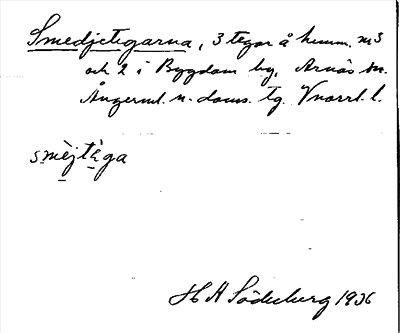 Smedjetegarna, 3 tegar å hemm. n:3
och 2 i Bygdom by, Arnäs sn.
Ångerml. n. doms. tg. Vnorrl. l.
smèjtè̱ga
H A Söderberg 1936